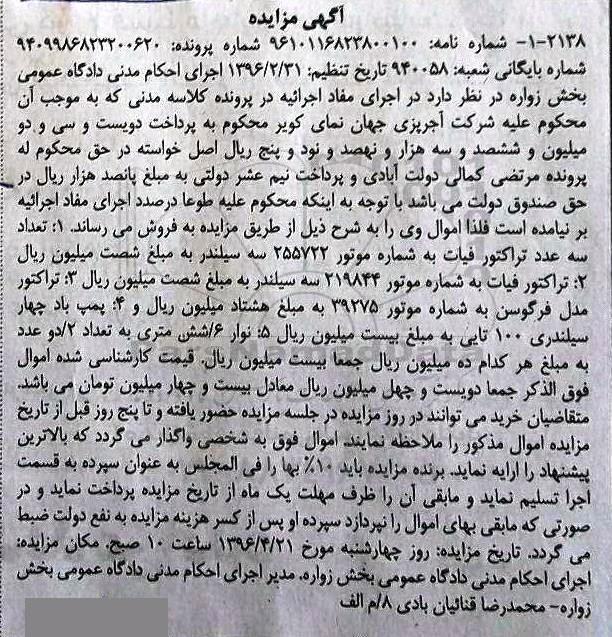 آگهی مزایده
۱-۲۱۳۸- شماره نامه: ۹۶۱۰۱۱۶۸۲۳۸۰۰۱۰۰ شماره پرونده: ۹۴۰۹۹۸۶۸۲۳۲۰۰۶۲۰
شماره بایگانی شعبه: ۹۴۰۰۵۸ تاریخ تنظیم: ۱۳۹۶/۲/۳۱ اجرای احکام مدنی دادگاه عمومی
بخش زواره در نظر دارد در اجرای مفاد اجرائیه در پرونده کلاسه مدنی که به موجب آن
محکوم علیه شرکت آجرپزی جهان نمای کویر محکوم به پرداخت دویست و سی و دو
میلیون و ششصد و سه هزار و نهصد و نود و پنج ریال اصل خواسته در حق محکوم له
پرونده مرتضی کمالی دولت آبادی و پرداخت نیم عشر دولتی به مبلغ پانصد هزار ریال در
حق صندوق دولت می باشد با توجه به اینکه محکوم علیه طوعا درصدد اجرای مفاد اجرائیه
بر نیامده است فلذا اموال وی را به شرح ذیل از طریق مزایده به فروش می رساند. ۱: تعداد
سه عدد تراکتور فیات به شماره موتور ۲۵۵۷۲۲ سه سیلندر به مبلغ شصت میلیون ریال
۲: تراکتور فیات به شماره موتور ۲۱۹۸۴۴ سه سیلندر به مبلغ شصت میلیون ریال ۳: تراکتور
مدل فرگوسن به شماره موتور ۳۹۲۷۵ به مبلغ هشتاد میلیون ریال و ۴: پمپ باد چهار
سیلندری ۱۰۰ تایی به مبلغ بیست میلیون ریال ۵: نوار ۶/شش متری به تعداد ۲/دو عدد
به مبلغ هر کدام ده میلیون ریال جمعا بیست میلیون ریال. قیمت کارشناسی شده اموال
فوق الذکر جمعا دویست و چهل میلیون ریال معادل بیست و چهار میلیون تومان می باشد.
متقاضیان خرید می توانند در روز مزایده در جلسه مزایده حضور یافته و تا پنج روز قبل از تاریخ
مزایده اموال مذکور را ملاحظه نمایند. اموال فوق به شخصی واگذار می گردد که بالاترین
پیشنهاد را ارایه نماید. برنده مزایده باید ۱۰٪ بها را فی المجلس به عنوان سپرده به قسمت
اجرا تسلیم نماید و مابقی آن را ظرف مهلت یک ماه از تاریخ مزایده پرداخت نماید و در
صورتی که مابقی بهای اموال را نپردازد سپرده او پس از کسر هزینه مزایده به نفع دولت ضبط
می گردد. تاریخ مزایده: روز چهارشنبه مورخ ۱۳۹۶/۴/۲۱ ساعت ۱۰ صبح. مکان مزایده:
اجرای احکام مدنی دادگاه عمومی بخش زواره. مدیر اجرای احکام مدنی دادگاه عمومی بخش
زواره- محمدرضا قنائیان بادی ۸/م الف